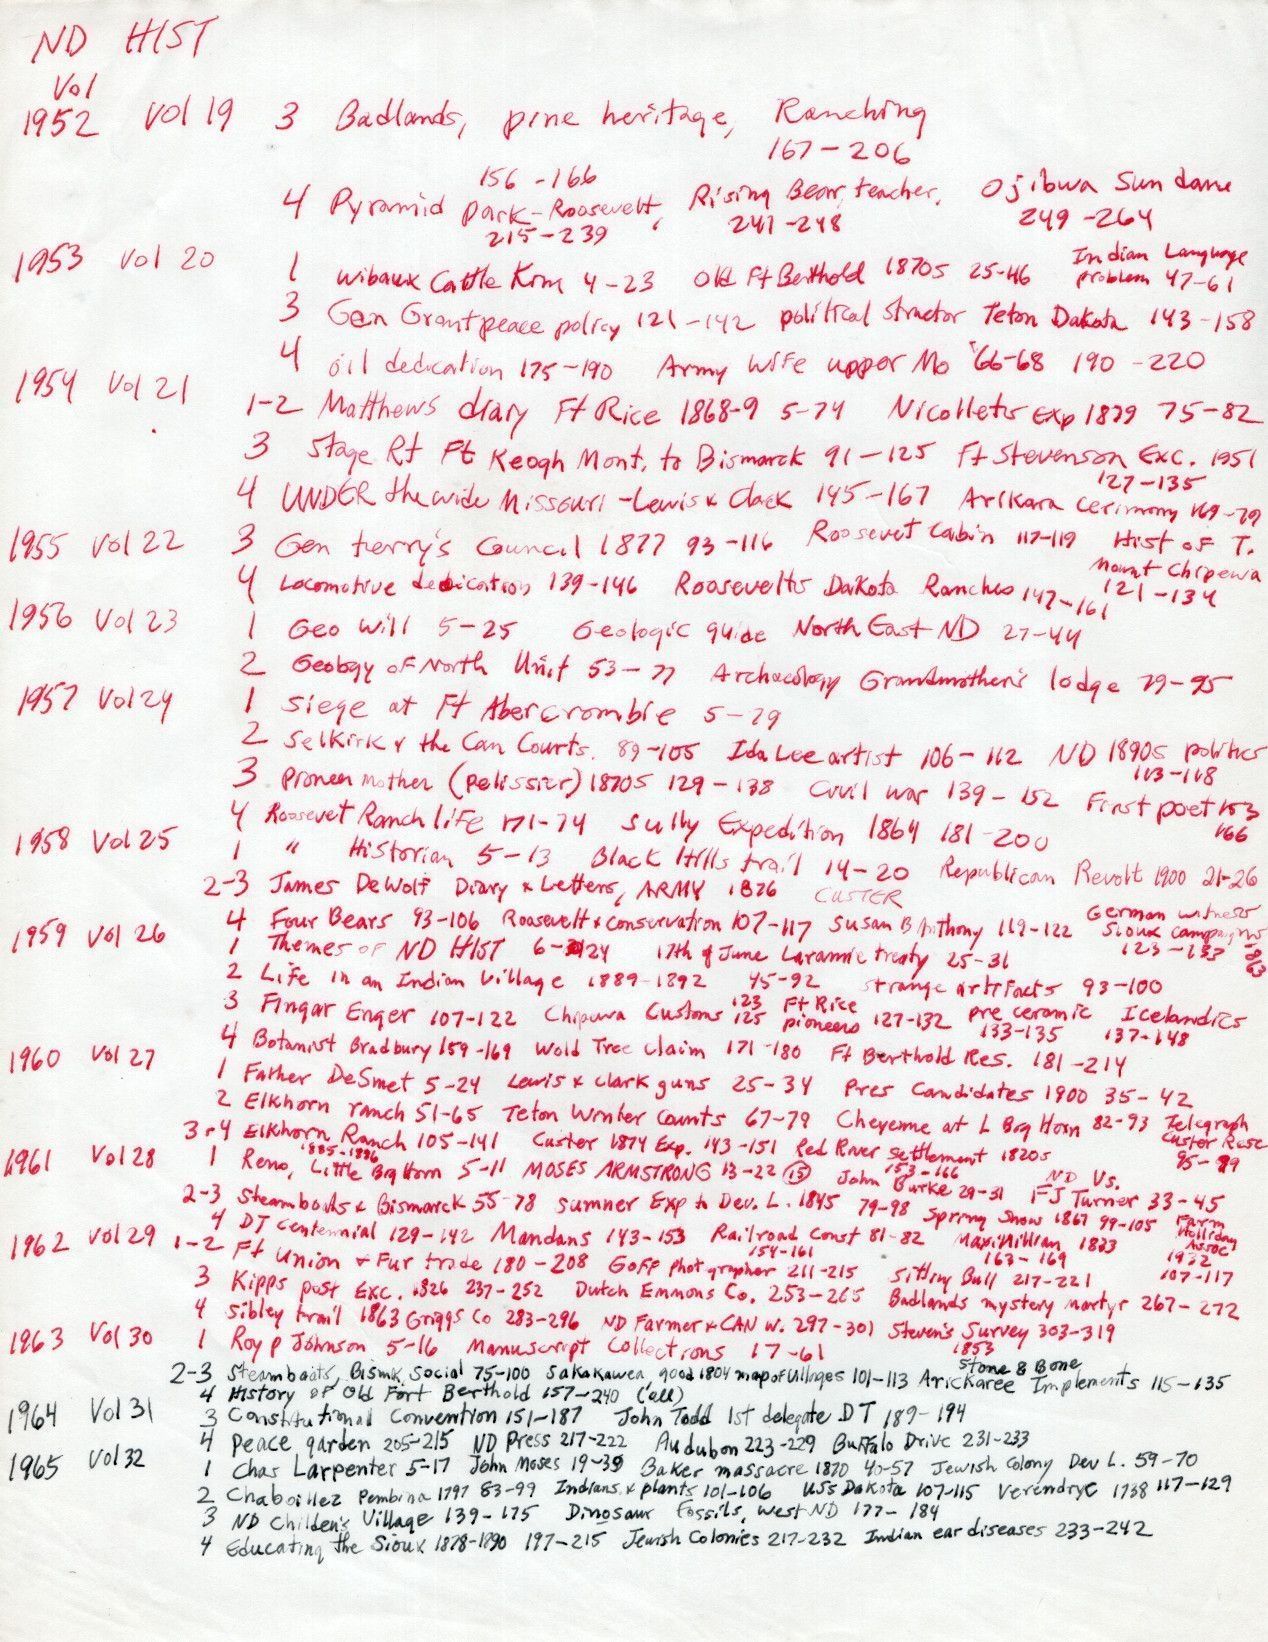 ND HIST
Vol
1952 Vol 19 3 Badlands, pine heritage, Ranching
167-206
156-166
4 Pyramid Park-Roosevelt, Rising Bear, teacher, Ojibwa Sun dance
215-239 241-248 249-264
1953 Vol 20 1 Wibaux Cattle King 4-23 Old Ft Berthold 1870s 25-46 Indian Language problem 47-61
3 Gen Grant peace policy 121-142 political structor Teton Dakota 143-158
4 oil dedication 175-190 Army Wife upper Mo '66-68 190-220
1954 Vol 21 1-2 Matthews diary Ft Rice 1868-9 5-74 Nicollets Exp 1839 75-82
3 Stage Rt Ft Keogh Mont. to Bismarck 91-125 Ft Stevenson Exc. 1951
127-135
4 UNDER the wide Missouri-Lewis & Clark 145-167 Arikara cerimony 169-79
1955 Vol 22 3 Gen terry's Council 1877 93-116 Roosevet Cabin 117-119 Hist of T. Mount Chipewa
4 Locomotive dedication 139-146 Roosevelts Dakota Ranches 147-161 121-134
1956 Vol 23 1 Geo Will 5-25 Geologic guide North East ND 27-44
2 Geology of North Unit 53-77 Archaeology Grandmother's lodge 79-95
1957 Vol 24 1 Siege at Ft Abercrombie 5-79
2 Selkirk & the Can Courts. 89-105 Ida Lee artist 106-112 ND 1890s politics
113-118
3 Pioneer mother (pelissier) 1870s 129-138 Civil war 139-152 First poet 153
166
4 Roosevet Ranch life 171-74 Sully Expedition 1864 181-200
1958 Vol 25 1 " Historian 5-13 Black Hills trail 14-20 Republican Revolt 1900 21-26
2-3 James DeWolf Diary & Letters, ARMY 1876 CUSTER
4 Four Bears 93-106 Roosevelt & conservation 107-117 Susan B Anthony 119-122 German witness Sioux campaigns 1863
123-133
1959 Vol 26 1 Themes of ND HIST 6-24 17th of June Laramie treaty 25-31
2 Life in an Indian village 1889-1892 45-92 strange artifacts 93-100
3 Fingar Enger 107-122 Chipewa Customs 123 125 Ft Rice pioneers 127-132 pre ceramic 133-135 Icelandics 137-148
4 Botanist Bradbury 159-169 Wold Tree claim 171-180 Ft Berthold Res. 181-214
1960 Vol 27 1 Father DeSmet 5-24 Lewis & Clark guns 25-34 Pres Candidates 1900 35-42
2 Elkhorn ranch 51-65 Teton Winter Counts 67-79 Cheyenne at L Big Horn 82-93 Telegraph Custer Rose
95-99
3+4 Elkhorn Ranch 105-141 Custer 1874 Exp. 143-151 Red River settlement 1820s
1885-1886 153-166
1961 Vol 28 1 Reno, Little Big Horn 5-11 MOSES ARMSTRONG 13-22 (15) John Burke 29-31 ND Vs. FJ Turner 33-45
2-3 Steamboats & Bismarck 55-78 Sumner Exp to Dev. L. 1845 79-98 Spring Snow 1867 99-105 Farm Holliday Assoc 1932
107-117
4 DT centennial 129-142 Mandans 143-153 Railroad Const 81-82 Maximillian 1833
154-161 163-169
1962 Vol 29 1-2 Ft Union & Fur trade 180-208 Goff Photographer 211-215 Sitting Bull 217-221
3 Kipps post Exc. 1826 237-252 Dutch Emmons Co. 253-265 Badlands mystery martyr 267-272
4 Sibley trail 1863 Griggs Co 283-296 ND Farmer & CAN W. 297-301 Steven's Survey 303-319
1853
1963 Vol 30 1 Roy P Johnson 5-16 Manuscript Collections 17-61
2-3 Steamboats, Bismk, Social 75-100 Sakakawea, good 1804 map of villages 101-113 Arickaree Stone & Bone Implements 115-135
4 History of Old Fort Berthold 157-240 (all)
1964 Vol 31 3 Constitutional Convention 151-187 John Todd 1st delegate DT 189-194
4 Peace garden 205-215 ND Press 217-222 Audubon 223-229 Buffalo Drive 231-233
1965 Vol 32 1 Chas Larpenter 5-17 John Moses 19-39 Baker massacre 1870 40-57 Jewish Colony Dev L. 59-70
2 Chaboillez Pembina 1797 83-99 Indians & plants 101-106 USS Dakota 107-115 Verendrye 1738 117-129
3 ND Childen's Village 139-175 Dinosaur Fossils, West ND 177-184
4 Educating the Sioux 1878-1890 197-215 Jewish Colonies 217-232 Indian ear diseases 233-242